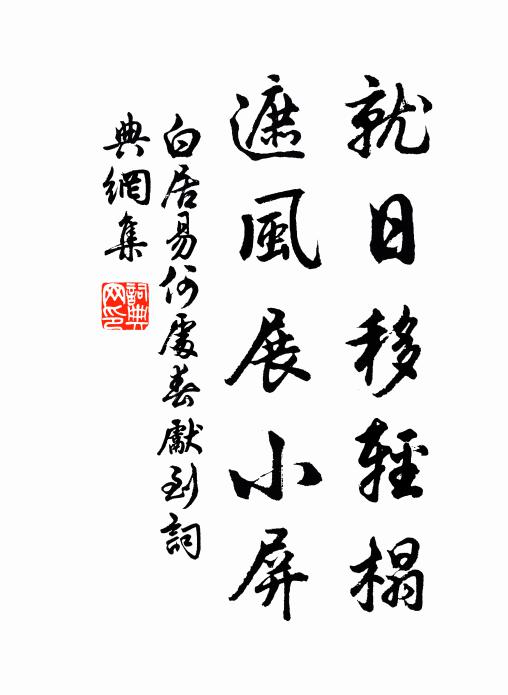 就日移輕榻
遮風展小屏
白居易何處春獻到詞
典網集
詞典
网印